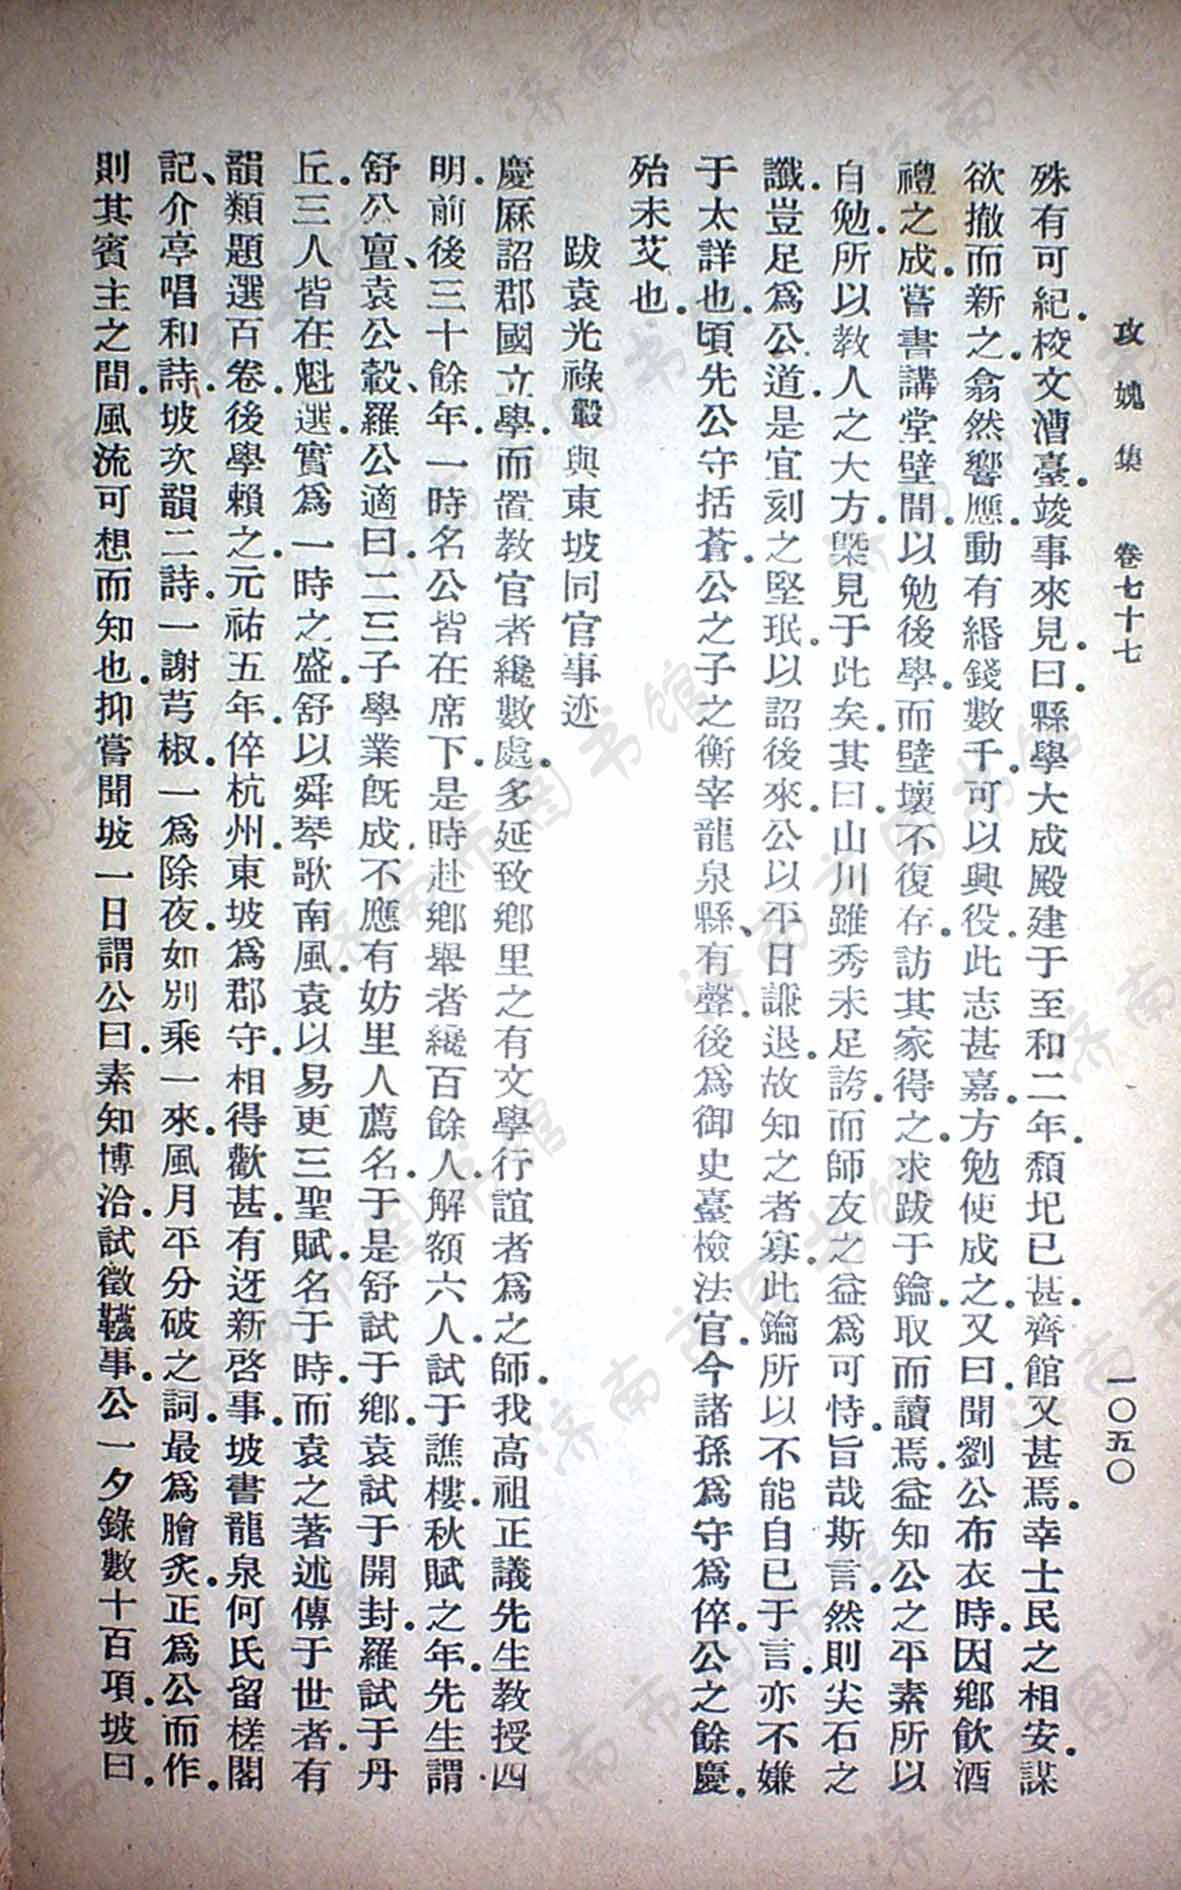 攻媿集　卷七十七　一〇五〇
殊有可紀。校文漕臺。竣事來見。曰。縣學大成殿建于至和二年。頹圯已甚。齊館又甚焉。幸士民之相安。謀
欲撤而新之。翕然響應。動有緡錢數千。可以興役。此志甚嘉。方勉使成之。又曰。聞劉公布衣時。因鄉飲酒
禮之成。嘗書講堂壁間。以勉後學。而壁壞不復存。訪其家得之。求跋于鑰。取而讀焉。益知公之平素所以
自勉。所以教人之大方。槩見于此矣。其曰。山川雖秀未足誇。而師友之益爲可恃。旨哉斯言。然則尖石之
讖。豈足爲公道。是宜刻之堅珉。以詔後來。公以平日謙退。故知之者寡。此鑰所以不能自已于言。亦不嫌
于太詳也。頃先公守括蒼。公之子之衡宰龍泉縣、有聲。後爲御史臺檢法官。今諸孫爲守爲倅。公之餘慶。
殆未艾也。
跋袁光祿轂與東坡同官事迹
慶厤詔郡國立學。而置教官者纔數處。多延致鄉里之有文學行誼者爲之師。我高祖正議先生教授四
明。前後三十餘年。一時名公皆在席下。是時赴鄉舉者纔百餘人。解額六人。試于譙樓。秋賦之年。先生謂
舒公亶、袁公轂、羅公適曰。二三子學業旣成。不應有妨里人薦名。于是舒試于鄉。袁試于開封。羅試于丹
丘。三人皆在魁選。實爲一時之盛。舒以舜琴歌南風。袁以易更三聖賦。名于時。而袁之著述傳于世者。有
韻類題選百卷。後學賴之。元祐五年。倅杭州。東坡爲郡守。相得歡甚。有迓新啓事。坡書龍泉何氏留槎閣
記、介亭唱和詩。坡次韻二詩。一謝芎椒。一爲除夜。如別乘一來。風月平分破之詞。最爲膾炙。正爲公而作。
則其賓主之間。風流可想而知也。抑嘗聞坡一日謂公曰。素知博洽。試徵韈事。公一夕錄數十百項。坡曰。